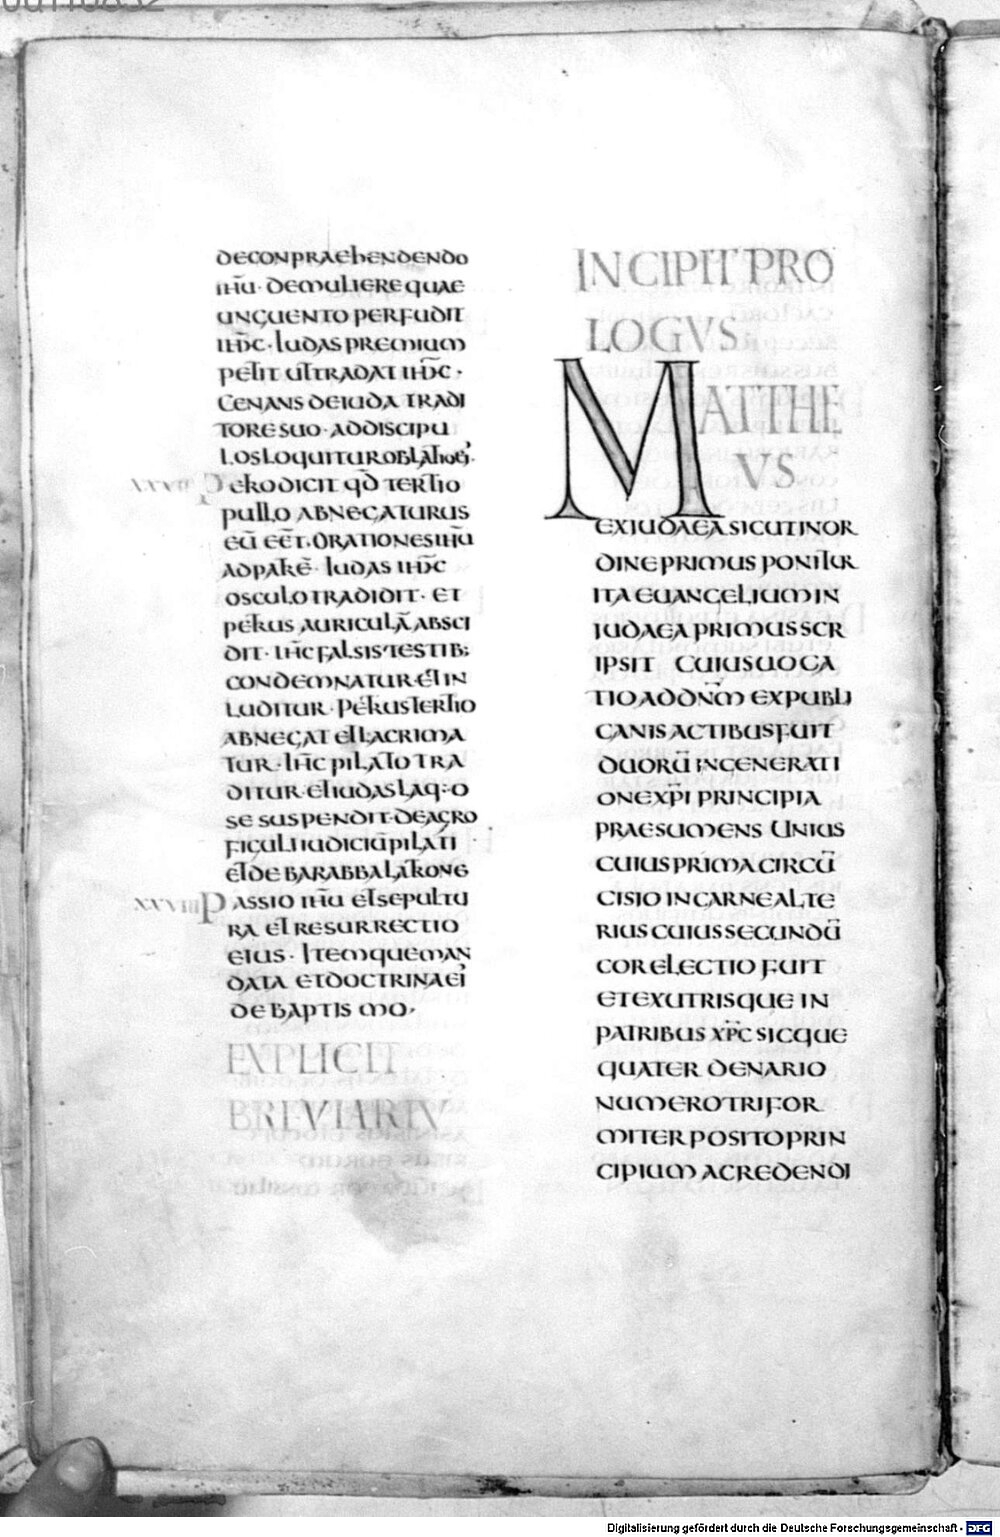 DECONPRAEHENDENDO
IHŪ · DEMULIEREQUAE
UNGUENTO PERFUDIT
IHC̄ · IUDASPREMIUM
PETIT UTTRADAT IHC̄ ·
CENANS DEIUDA TRADI
TORESUO · ADDISCIPU
LOSLOQUITUR
XXVII PETRO DICIT QD̄ TERTIO
PULLO ABNEGATURUS
EŪ EĒT · ORATIONESIHŪ
ADPATRĒ · IUDAS IHC̄
OSCULOTRADIDIT · ET
PETRUS AURICULĀ ABSCI
DIT · IHC̄ FALSISTESTIB;
CONDEMNATUR ET IN
LUDITUR · PETRUSTERTIO
ABNEGAT ETLACRIMA
TUR · IHC̄ PILATO TRA
DITUR ETIUDASLAQ:O
SE SUSPENDIT · DEAGRO
FIGULI IUDICIŪPILATI
ETDE BARABBALATRONE
XXVIII PASSIO IHŪ ETSEPULTU
RA ET RESURRECTIO
EIUS · ITEMQUEMAN
DATA ETDOCTRINAEI'
DE BAPTISMO ·
EXPLICIT
BREVIARIV
INCIPIT PRO
LOGVS
MATTHE
VS
EXIUDAEASICUTINOR
DINEPRIMUS PONITUR
ITA EUANGELIUMIN
IUDAEA PRIMUSSCR
IPSIT CUIUSUOCA
TIOADDN̄M EXPUBLI
CANISACTIBUSFUIT
DUORŪ INGENERATI
ONEXP̄I PRINCIPIA
PRAESUMENS UNIUS
CUIUSPRIMACIRCŪ
CISIO INCARNEALTE
RIUSCUIUSSECUNDŪ
CORELECTIO FUIT
ETEXUTRISQUE IN
PATRIBUS XP̄C SICQUE
QUATER DENARIO
NUMEROTRIFOR
MITERPOSITOPRIN
CIPIUMACREDENDI
Digitalisierung gefördert durch die Deutsche Forschungsgemeinschaft - DFG